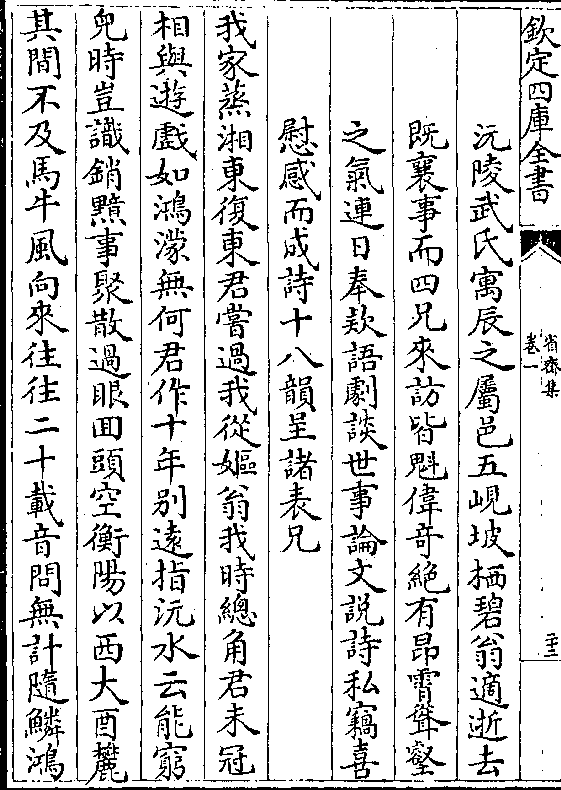 欽定四庫全書
省齋集
卷一
二十三
沅陵武氏寓辰之屬邑五峴坡栖碧翁適逝去
既襄事而四兄來訪皆魁偉竒絶有昂霄聳壑
之氣連日奉欵語劇談世事論文説詩私竊喜
慰感而成詩十八韻呈諸表兄
我家蒸湘東復東君嘗過我從嫗翁我時總角君未冠
相與遊戲如鴻濛無何君作十年別遠指沅水云能窮
兒時豈識銷黯事聚散過眼回頭空衡陽以西大酉麓
其間不及馬牛風向來往往二十載音問無計隨鱗鴻